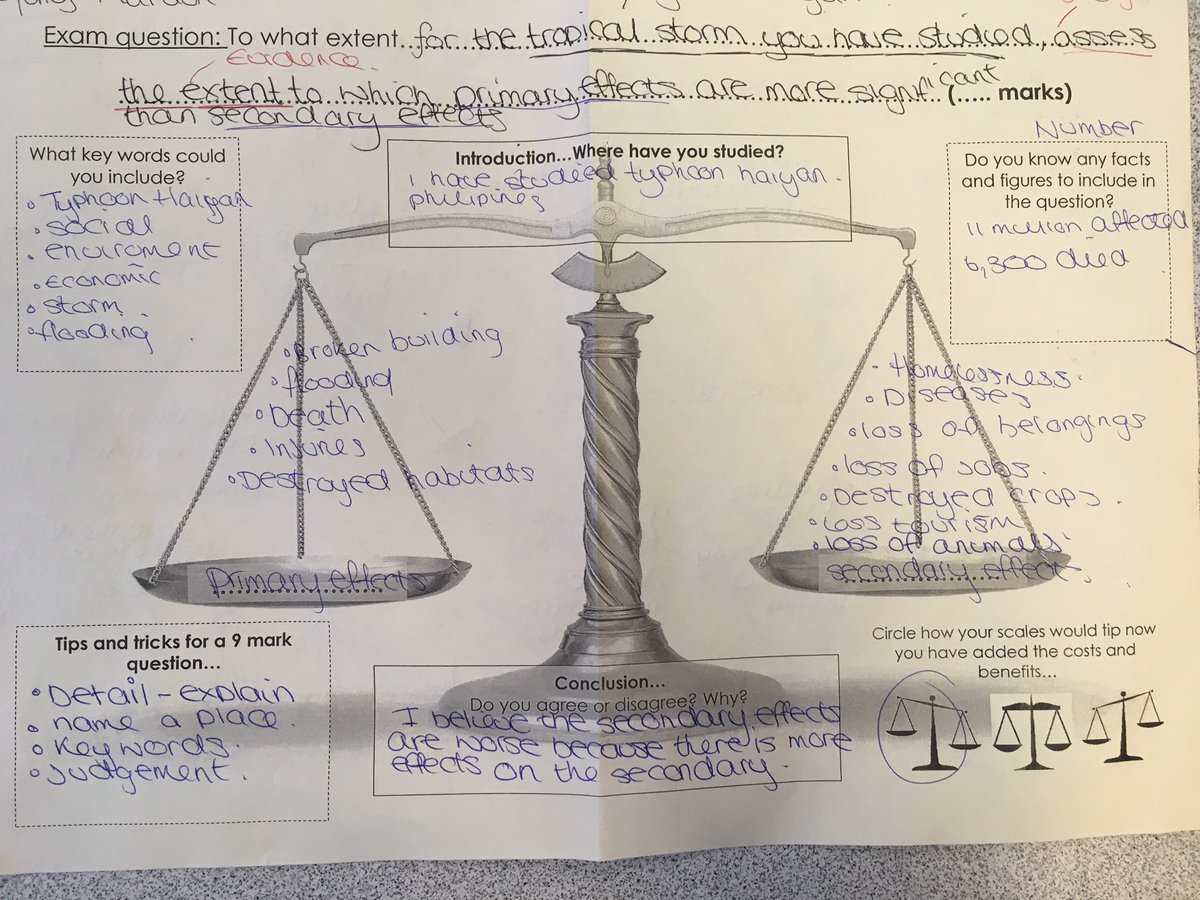 Exam question: To what extent for the tropical storm you have studied, assess
Evidence
the extent to which primary effects are more significant (..... marks)
than secondary effects
What key words could
you include?
Typhoon Haiyan
social
enviroment
economic
storm
flooding
Introduction...Where have you studied?
I have studied typhoon haiyan.
philipines
Number
Do you know any facts
and figures to include in
the question?
11 million affected
6,300 died
Broken building
flooding
Death
Injures
Destrayed habitats
primary effects
Homelessness.
Diseases
loss of belongings
loss of jobs.
Destroyed crops.
loss tourism
loss of animals.
secondary effects.
Tips and tricks for a 9 mark
question...
Detail - explain
name a place.
Key words.
Judgement.
Conclusion...
Do you agree or disagree? Why?
I believe the secondary effects
are worse because there is more
effects on the secondary.
Circle how your scales would tip now
you have added the costs and
benefits...